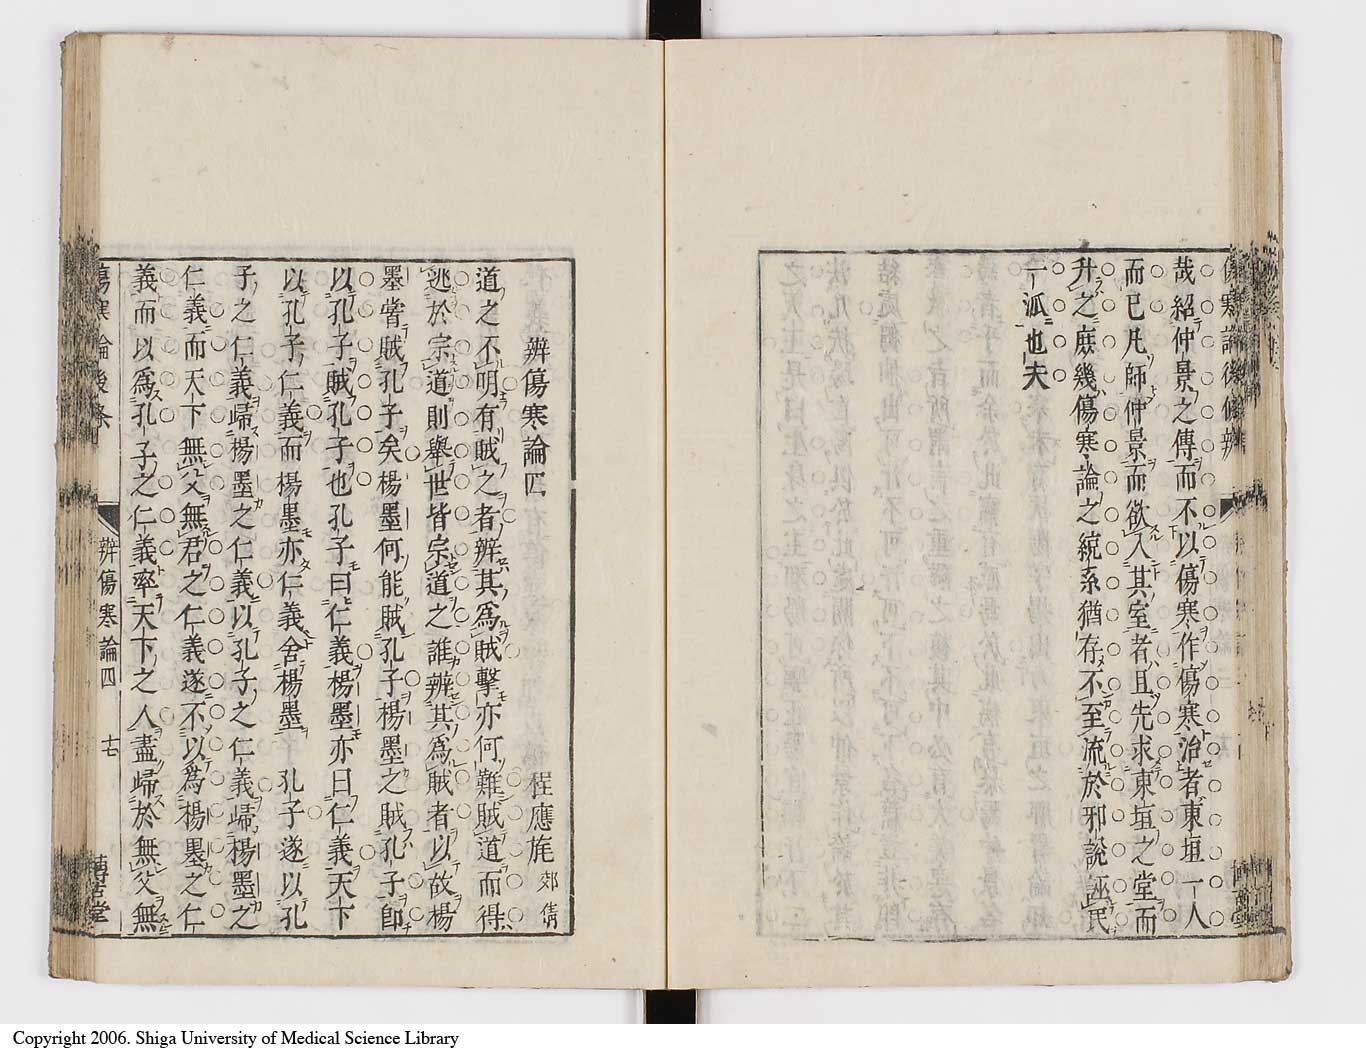 哉紹仲景之傳而不以傷寒作傷寒治者東垣一人
而已凡師仲景而欲入其室者且先求東垣之堂而
升之庶幾傷寒論之統系猶存不至流於邪說誣民
一派也夫
辨傷寒論四
程應旄郊倩
道之不明有賊之者辨其爲賊擊亦何難賊道而得
逃於宗道則舉世皆宗道之誰辨其爲賊者以故楊
墨嘗賊孔子矣楊墨何能賊孔子楊墨之賊孔子卽
以孔子賊孔子也孔子曰仁義楊墨亦曰仁義天下
以孔子仁義而楊墨亦仁義舍楊墨
孔子遂以孔
子之仁義歸楊墨之仁義以孔子之仁義歸楊墨之
仁義而天下無父無君之仁義遂不以爲楊墨之仁
義而以爲孔子之仁義率天下之人盡歸於無父無
傷寒論後条
辨傷寒論四
十七
博古堂
Copyright 2006. Shiga University of Medical Science Library